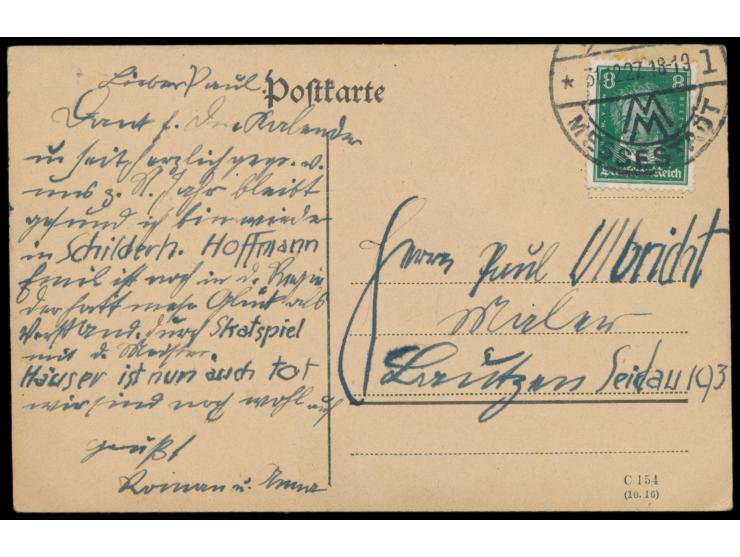 Lieber Paul!
Postkarte
Dank f. die Kalender
u seit herzlich gegr. v.
uns z. N. Jahr bleibt
gesund ich bin wieder
in Schilderh. Hoffmann
Emil ist noch in d.
der hatt mehr Glück als
Verstand. durch Skatspiel
mit d. Meister.
Häuser ist nun auch tot
wir sind noch wohl auf
grüßt
Roman u. Anna
8 8
Deutsches Reich
27.18-19
1
MESSESTADT
MM
Herrn Paul Ulbricht
Maler
Bautzen Seidau 193
C 154
(10. 16)